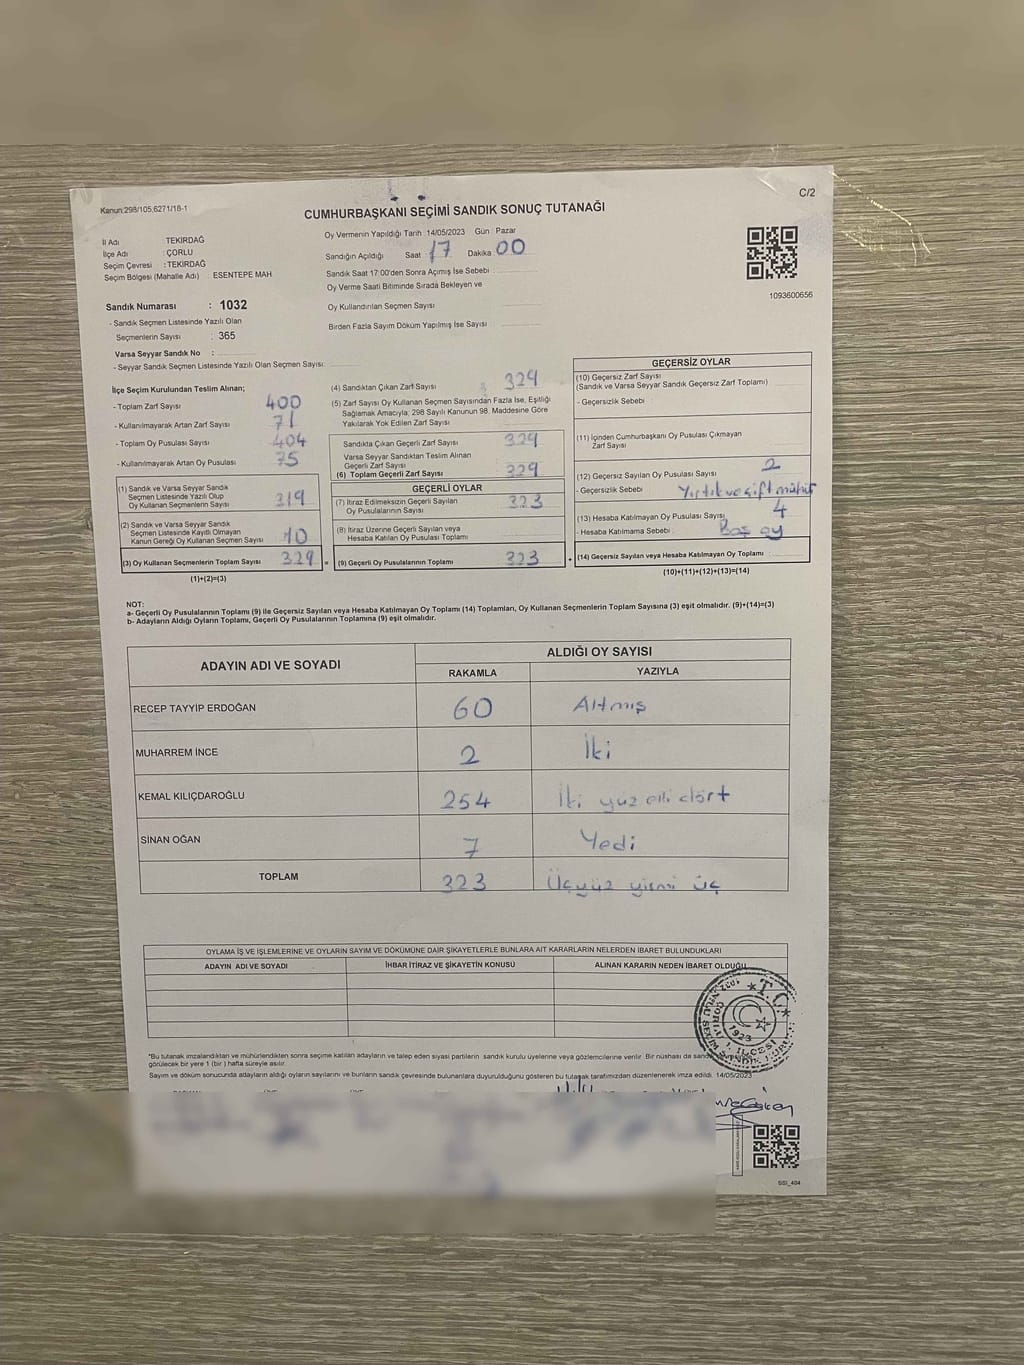 Kanun:298/105,6271/18-1
C/2
CUMHURBAŞKANI SEÇİMİ SANDIK SONUÇ TUTANAĞI
İl Adı TEKİRDAĞ
İlçe Adı : ÇORLU
Seçim Çevresi : TEKİRDAĞ
Seçim Bölgesi (Mahalle Adı) : ESENTEPE MAH
Sandık Numarası : 1032
- Sandık Seçmen Listesinde Yazılı Olan
Seçmenlerin Sayısı : 365
Varsa Seyyar Sandık No :
- Seyyar Sandık Seçmen Listesinde Yazılı Olan Seçmen Sayısı:
Oy Vermenin Yapıldığı Tarih :14/05/2023 Gün : Pazar
Sandığın Açıldığı Saat 17 Dakika 00
Sandık Saat 17:00'den Sonra Açımış İse Sebebi
Oy Verme Saati Bitiminde Sırada Bekleyen ve
Oy Kullandırılan Seçmen Sayısı
Birden Fazla Sayım Döküm Yapılmış İse Sayısı
1093600656
İlçe Seçim Kurulundan Teslim Alınan;
- Toplam Zarf Sayısı 400
- Kullanılmayarak Artan Zarf Sayısı 71
- Toplam Oy Pusulası Sayısı 404
- Kullanılmayarak Artan Oy Pusulası 75
(1) Sandık ve Varsa Seyyar Sandık
Seçmen Listesinde Yazılı Olup
Oy Kullanan Seçmenlerin Sayısı 319
(2) Sandık ve Varsa Seyyar Sandık
Seçmen Listesinde Kayıtlı Olmayan
Kanun Gereği Oy Kullanan Seçmen Sayısı 10
(3) Oy Kullanan Seçmenlerin Toplam Sayısı 329 =
(1)+(2)=(3)
(4) Sandıktan Çıkan Zarf Sayısı 329
(5) Zarf Sayısı Oy Kullanan Seçmen Sayısından Fazla İse, Eşitliği
Sağlamak Amacıyla; 298 Sayılı Kanunun 98. Maddesine Göre
Yakılarak Yok Edilen Zarf Sayısı
Sandıkta Çıkan Geçerli Zarf Sayısı 329
Varsa Seyyar Sandıktan Teslim Alınan
Geçerli Zarf Sayısı
(6) Toplam Geçerli Zarf Sayısı 329
GEÇERLİ OYLAR
(7) İtiraz Edilmeksizin Geçerli Sayılan
Oy Pusulalarının Sayısı 323
(8) İtiraz Üzerine Geçerli Sayılan veya
Hesaba Katılan Oy Pusulası Toplamı
(9) Geçerli Oy Pusulalarının Toplamı 323 +
GEÇERSİZ OYLAR
(10) Geçersiz Zarf Sayısı
(Sandık ve Varsa Seyyar Sandık Geçersiz Zarf Toplamı)
- Geçersizlik Sebebi
(11) İçinden Cumhurbaşkanı Oy Pusulası Çıkmayan
Zarf Sayısı
(12) Geçersiz Sayılan Oy Pusulası Sayısı 2
- Geçersizlik Sebebi Yırtık ve çift mühür
(13) Hesaba Katılmayan Oy Pusulası Sayısı 4
- Hesaba Katılmama Sebebi Boş oy
(14) Geçersiz Sayılan veya Hesaba Katılmayan Oy Toplamı
(10)+(11)+(12)+(13)=(14)
NOT:
a- Geçerli Oy Pusulalarının Toplamı (9) ile Geçersiz Sayılan veya Hesaba Katılmayan Oy Toplamı (14) Toplamları, Oy Kullanan Seçmenlerin Toplam Sayısına (3) eşit olmalıdır. (9)+(14)=(3)
b- Adayların Aldığı Oyların Toplamı, Geçerli Oy Pusulalarının Toplamına (9) eşit olmalıdır.
ADAYIN ADI VE SOYADI ALDIĞI OY SAYISI
RAKAMLA YAZIYLA
RECEP TAYYİP ERDOĞAN 60 Altmış
MUHARREM İNCE 2 İki
KEMAL KILIÇDAROĞLU 254 İki yüz elli dört
SİNAN OĞAN 7 Yedi
TOPLAM 323 Üçyüz yirmi üç
OYLAMA İŞ VE İŞLEMLERİNE VE OYLARIN SAYIM VE DÖKÜMÜNE DAİR ŞİKAYETLERLE BUNLARA AİT KARARLARIN NELERDEN İBARET BULUNDUKLARI
ADAYIN ADI VE SOYADI İHBAR İTİRAZ VE ŞİKAYETİN KONUSU ALINAN KARARIN NEDEN İBARET OLDUĞU
T.C.
1923
*Bu tutanak imzalandıktan ve mühürlendikten sonra seçime katılan adayların ve talep eden siyasi partilerin sandık kurulu üyelerine veya gözlemcilerine verilir. Bir nüshası da
görülecek bir yere 1 (bir) hafta süreyle asılır.
Sayım ve döküm sonucunda adayların aldığı oyların sayılarını ve bunların sandık çevresinde bulunanlara duyurulduğunu gösteren bu tutanak tarafımızdan düzenlenerek imza edildi. 14/05/2023
SSI_404